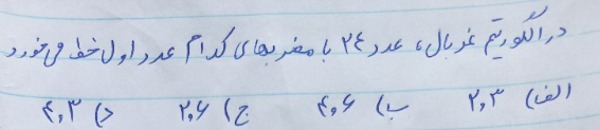 در الگوریتم غربال، عدد ۲۴ با مضربهای کدام عدد اول خط می‌خورد
الف) ۲،۳ ب) ۴،۶ ج) ۲،۶ د) ۴،۳